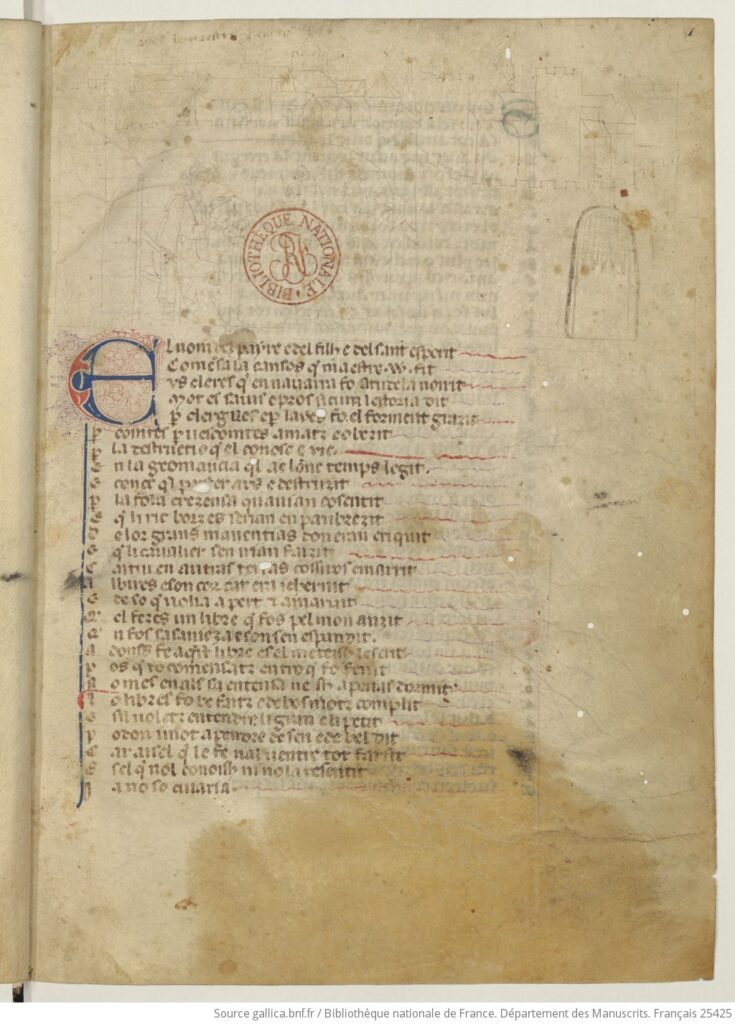 El nom del payre e del filh e del sant esperit
Comēsa la cansos q̄ maestre .W. fit
Vs clercs q̄ en nauarra fo a tudela noirit
Mot es sauis e pros si cum lestoria dit
P̲ clergues e p̲ laycs fo el forment grazit
P̲ comtes p̲ uescomtes amatz e obezit
P̲ la destructio q̄ el conosc e vic
En la geomancia q̄l ac lōnc temps legit.
E conoc q̄l er ars e destruzit
P̲ la fola crezensa quauian cosentit
E q̄ li ric borzes serian enpaubrezit
De lor grans manentias don eran eriquit
E q̄ li caualier sen irian faizit
Caitiu en autras terras cossiros e marrit
Albires e son cor car era
De so q̄ uolia apert
El feses un libre q̄ fos pel mon auzit
Sa sauieza e son sen espandit.
Adoncs fe aq̄st libre es el meteish lescrit
Pos q̄ fo comensatz entro q̄ fo fenit
No mes en als sa entensa neish a penas dormit
Lo libres fo be faitz e de bos motz complit
E sil uoletz entendre li gran e li petit
Podon i mot apendre de sen e de bel dit
Car aisel q̄ le fe nal uentre tot farsit
E sel q̄ nol conoish ni no la resentit
Ja no so cuiaria
BIBLIOTHÈQUE NATIONALE
Source gallica.bnf.fr / Bibliothèque nationale de France. Département des Manuscrits. Français 25425